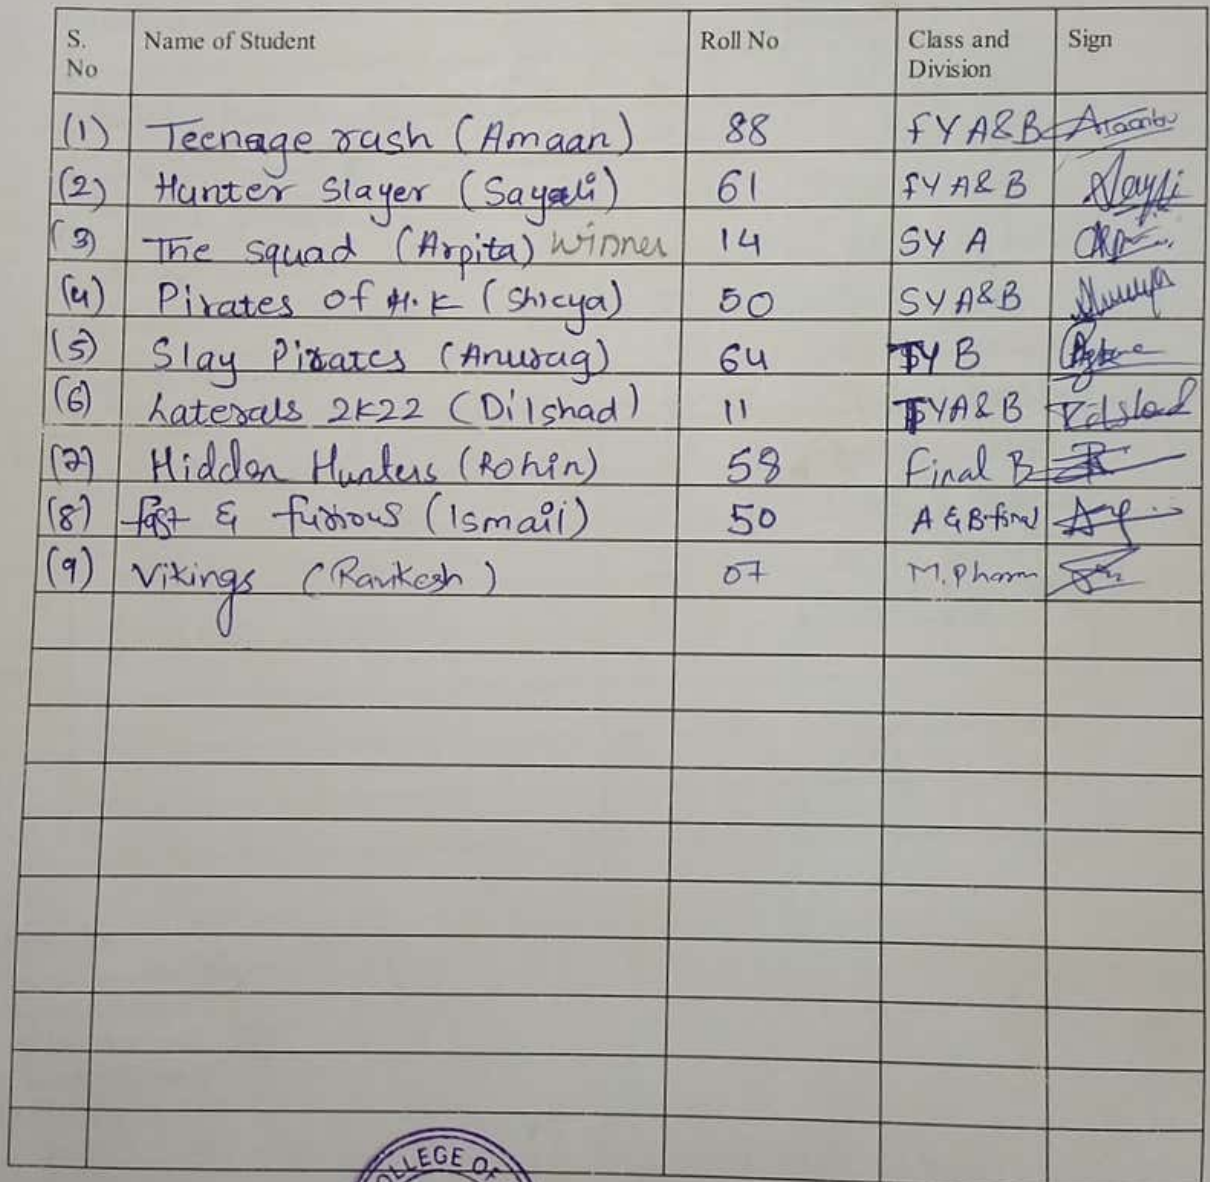 S. No Name of Student Roll No Class and Division Sign
(1) Teenage rush (Amaan) 88 FY A&B
(2) Hunter Slayer (Sayali) 61 FY A& B
(3) The squad (Arpita) Winner 14 SY A
(4) Pirates of H.K (Shreya) 50 SY A&B
(5) Slay Pirates (Anurag) 64 TY B
(6) Laterals 2K22 (Dilshad) 11 TYA& B
(7) Hidden Hunters (Rohin) 58 Final B
(8) fast & furious (Ismail) 50 A & B-final
(9) Vikings (Rankesh) 07 M.Pharm
OLLEGE OF